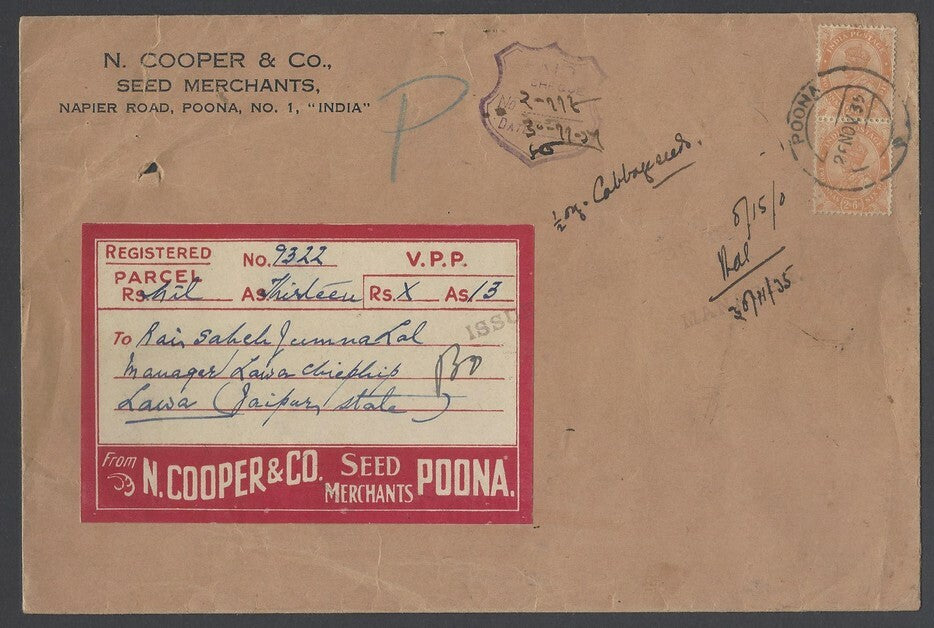 N. COOPER & Co.,
SEED MERCHANTS,
NAPIER ROAD, POONA, NO. 1, "INDIA"
P
No 2-112
30-11-35
INDIA POSTAGE
POONA
26 NOV 35
½ oz. Cabbage seeds.
8/15/0
30/11/35
REGISTERED No. 9322 V.P.P.
PARCEL
Rs. Nil As. Thirteen Rs. X As. 13
ISSU
To Rai Saheb Jumna Lal
Manager Lawa Chiefship
Lawa (Jaipur state)
From N. COOPER & CO. SEED MERCHANTS POONA.